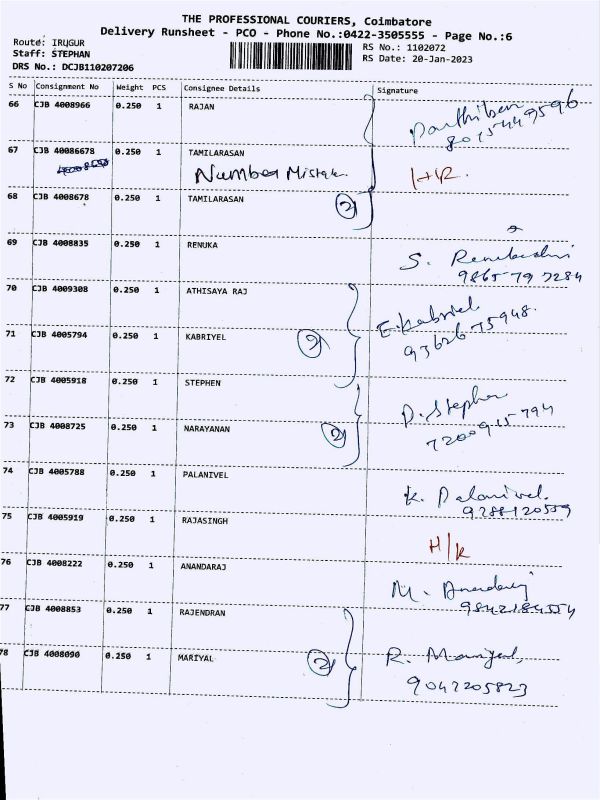 THE PROFESSIONAL COURIERS, Coimbatore
Delivery Runsheet - PCO - Phone No.:0422-3505555 - Page No.:6
Route: IRUGUR RS No.: 1102072
Staff: STEPHAN RS Date: 20-Jan-2023
DRS No.: DCJB110207206
S No Consignment No Weight PCS Consignee Details Signature
66 CJB 4008966 0.250 1 RAJAN Parthiben
8015449596
67 CJB 40086678 0.250 1 TAMILARASAN
Number Mistak. H/R.
68 CJB 4008678 0.250 1 TAMILARASAN 2
69 CJB 4008835 0.250 1 RENUKA S.
9865797284
70 CJB 4009308 0.250 1 ATHISAYA RAJ E.Kabriel
9362675948.
71 CJB 4005794 0.250 1 KABRIYEL 2
72 CJB 4005918 0.250 1 STEPHEN D. Stephen
7200915794
73 CJB 4008725 0.250 1 NARAYANAN 2
74 CJB 4005788 0.250 1 PALANIVEL K. Palanivel.
9288120559
75 CJB 4005919 0.250 1 RAJASINGH H/R
76 CJB 4008222 0.250 1 ANANDARAJ M. Anandaraj
9842184554
77 CJB 4008853 0.250 1 RAJENDRAN
78 CJB 4008090 0.250 1 MARIYAL 2 R. Mariyal,
9047205823